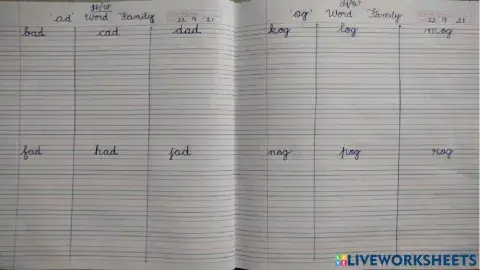 H/W
'ad' Word Family 22 9 21
bad cad dad
fad had jad
H/W
'og' Word Family 22 9 21
kog log mog
nog pog rog
LIVEWORKSHEETS